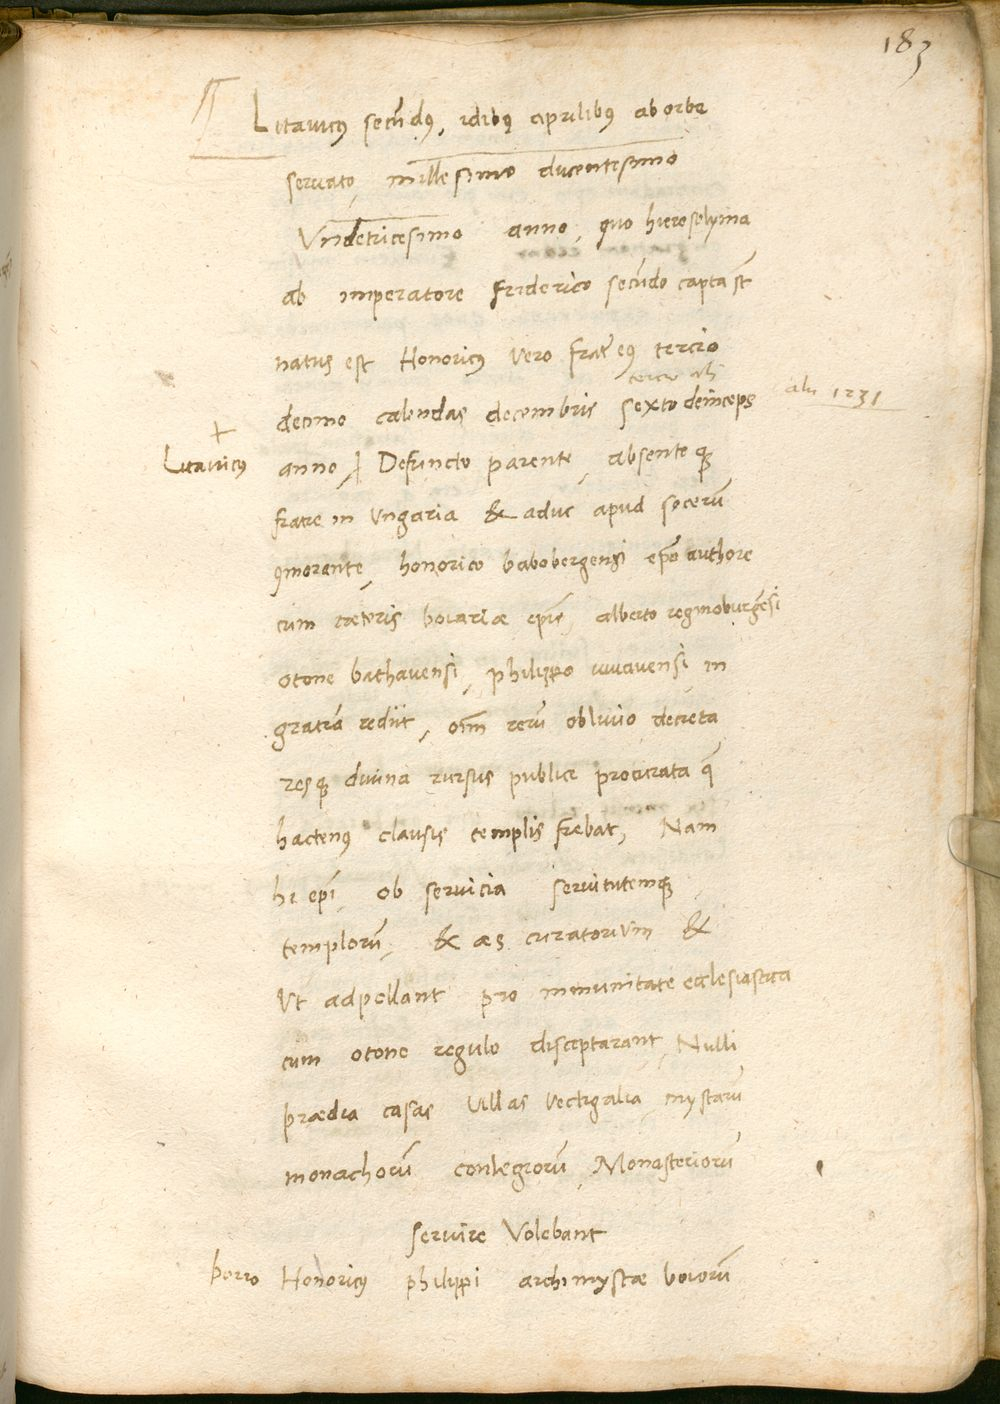 183
Litavicꝰ secūdꝰ, idibꝰ aprilibꝰ ab orbe
servato, millesimo ducentesimo
Vndetricesimo anno, quo hierosolyma
ab imperatore friderico secūdo capta st̄
natus est Honoricꝰ vero frat̄ eiꝰ tercio
tercio alii
decimo calendas decembris sexto deinceps alii 1231
Litavicus anno, Defuncto parente, absenteqꝫ
fratre in Vngaria & aduc apud socerū
ꝯmorante, honorico babobergensi ep̄o authore
cum cæteris boiariæ ep̄is, alberto reginoburgēsi
otone bathavensi, philippo iuvavensi in
gratiā rediit, oīm rerū oblivio decreta
resqꝫ divina rursus publice procurata q̄
hactenꝰ clausis templis fiebat, Nam
hi ep̄i ob servicia servitutemqꝫ
templorū, & æs curatorium &
Vt adpellant pro immunitate ecclesiastica
cum otone regulo disceptarant, Nulli
prædia casas villas vectigalia mystarū
monachorū conlegiorū Monasteriorū
servire Volebant
porro Honoricꝰ philippi archimystæ boiorū